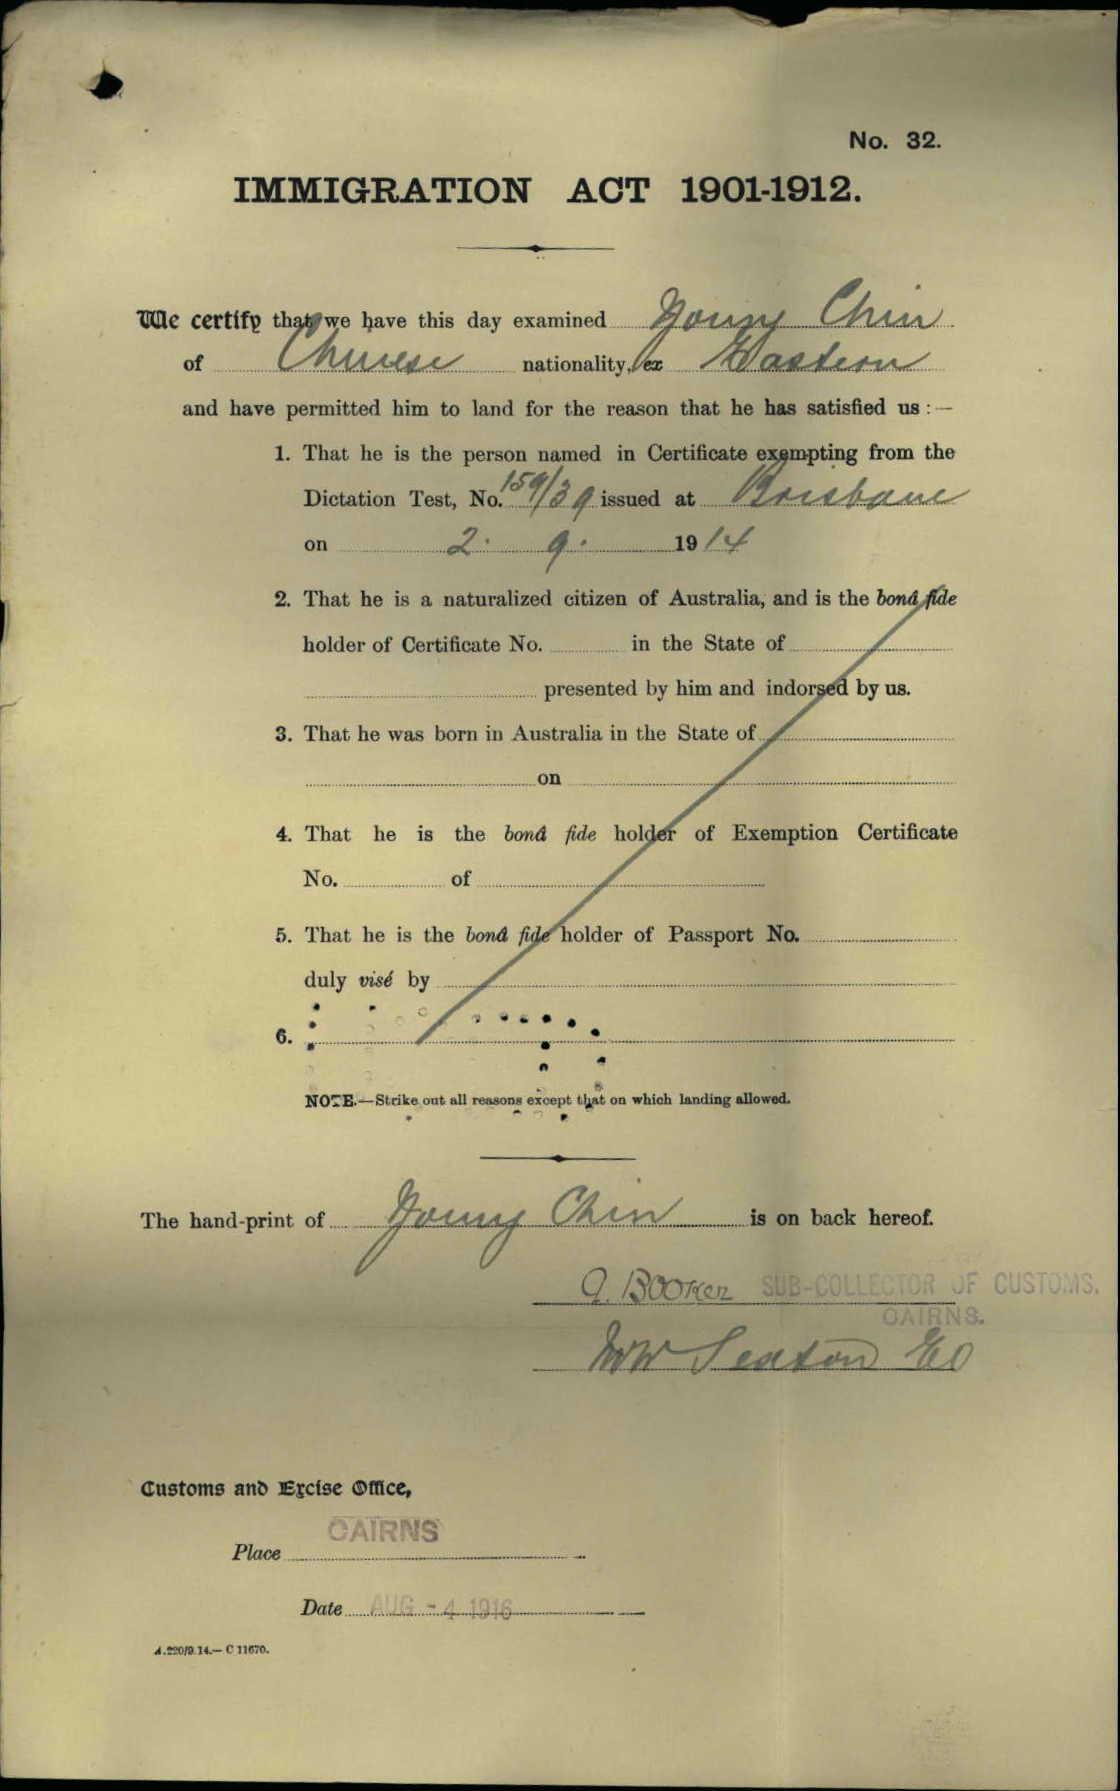 No. 32.
IMMIGRATION ACT 1901-1912.
We certify that we have this day examined Young Chin
of Chinese nationality, ex Eastern
and have permitted him to land for the reason that he has satisfied us :—
1. That he is the person named in Certificate exempting from the
Dictation Test, No. 159/39 issued at Brisbane
on 2. 9. 1914
2. That he is a naturalized citizen of Australia, and is the bonâ fide
holder of Certificate No. in the State of
presented by him and indorsed by us.
3. That he was born in Australia in the State of
on
4. That he is the bonâ fide holder of Exemption Certificate
No. of
5. That he is the bonâ fide holder of Passport No.
duly visé by
6.
NOTE.—Strike out all reasons except that on which landing allowed.
The hand-print of Young Chin is on back hereof.
A. Booker SUB-COLLECTOR OF CUSTOMS,
CAIRNS.
Seaton EO
Customs and Excise Office,
CAIRNS
Place
Date AUG - 4 1916
A.220/9.14.— C 11670.